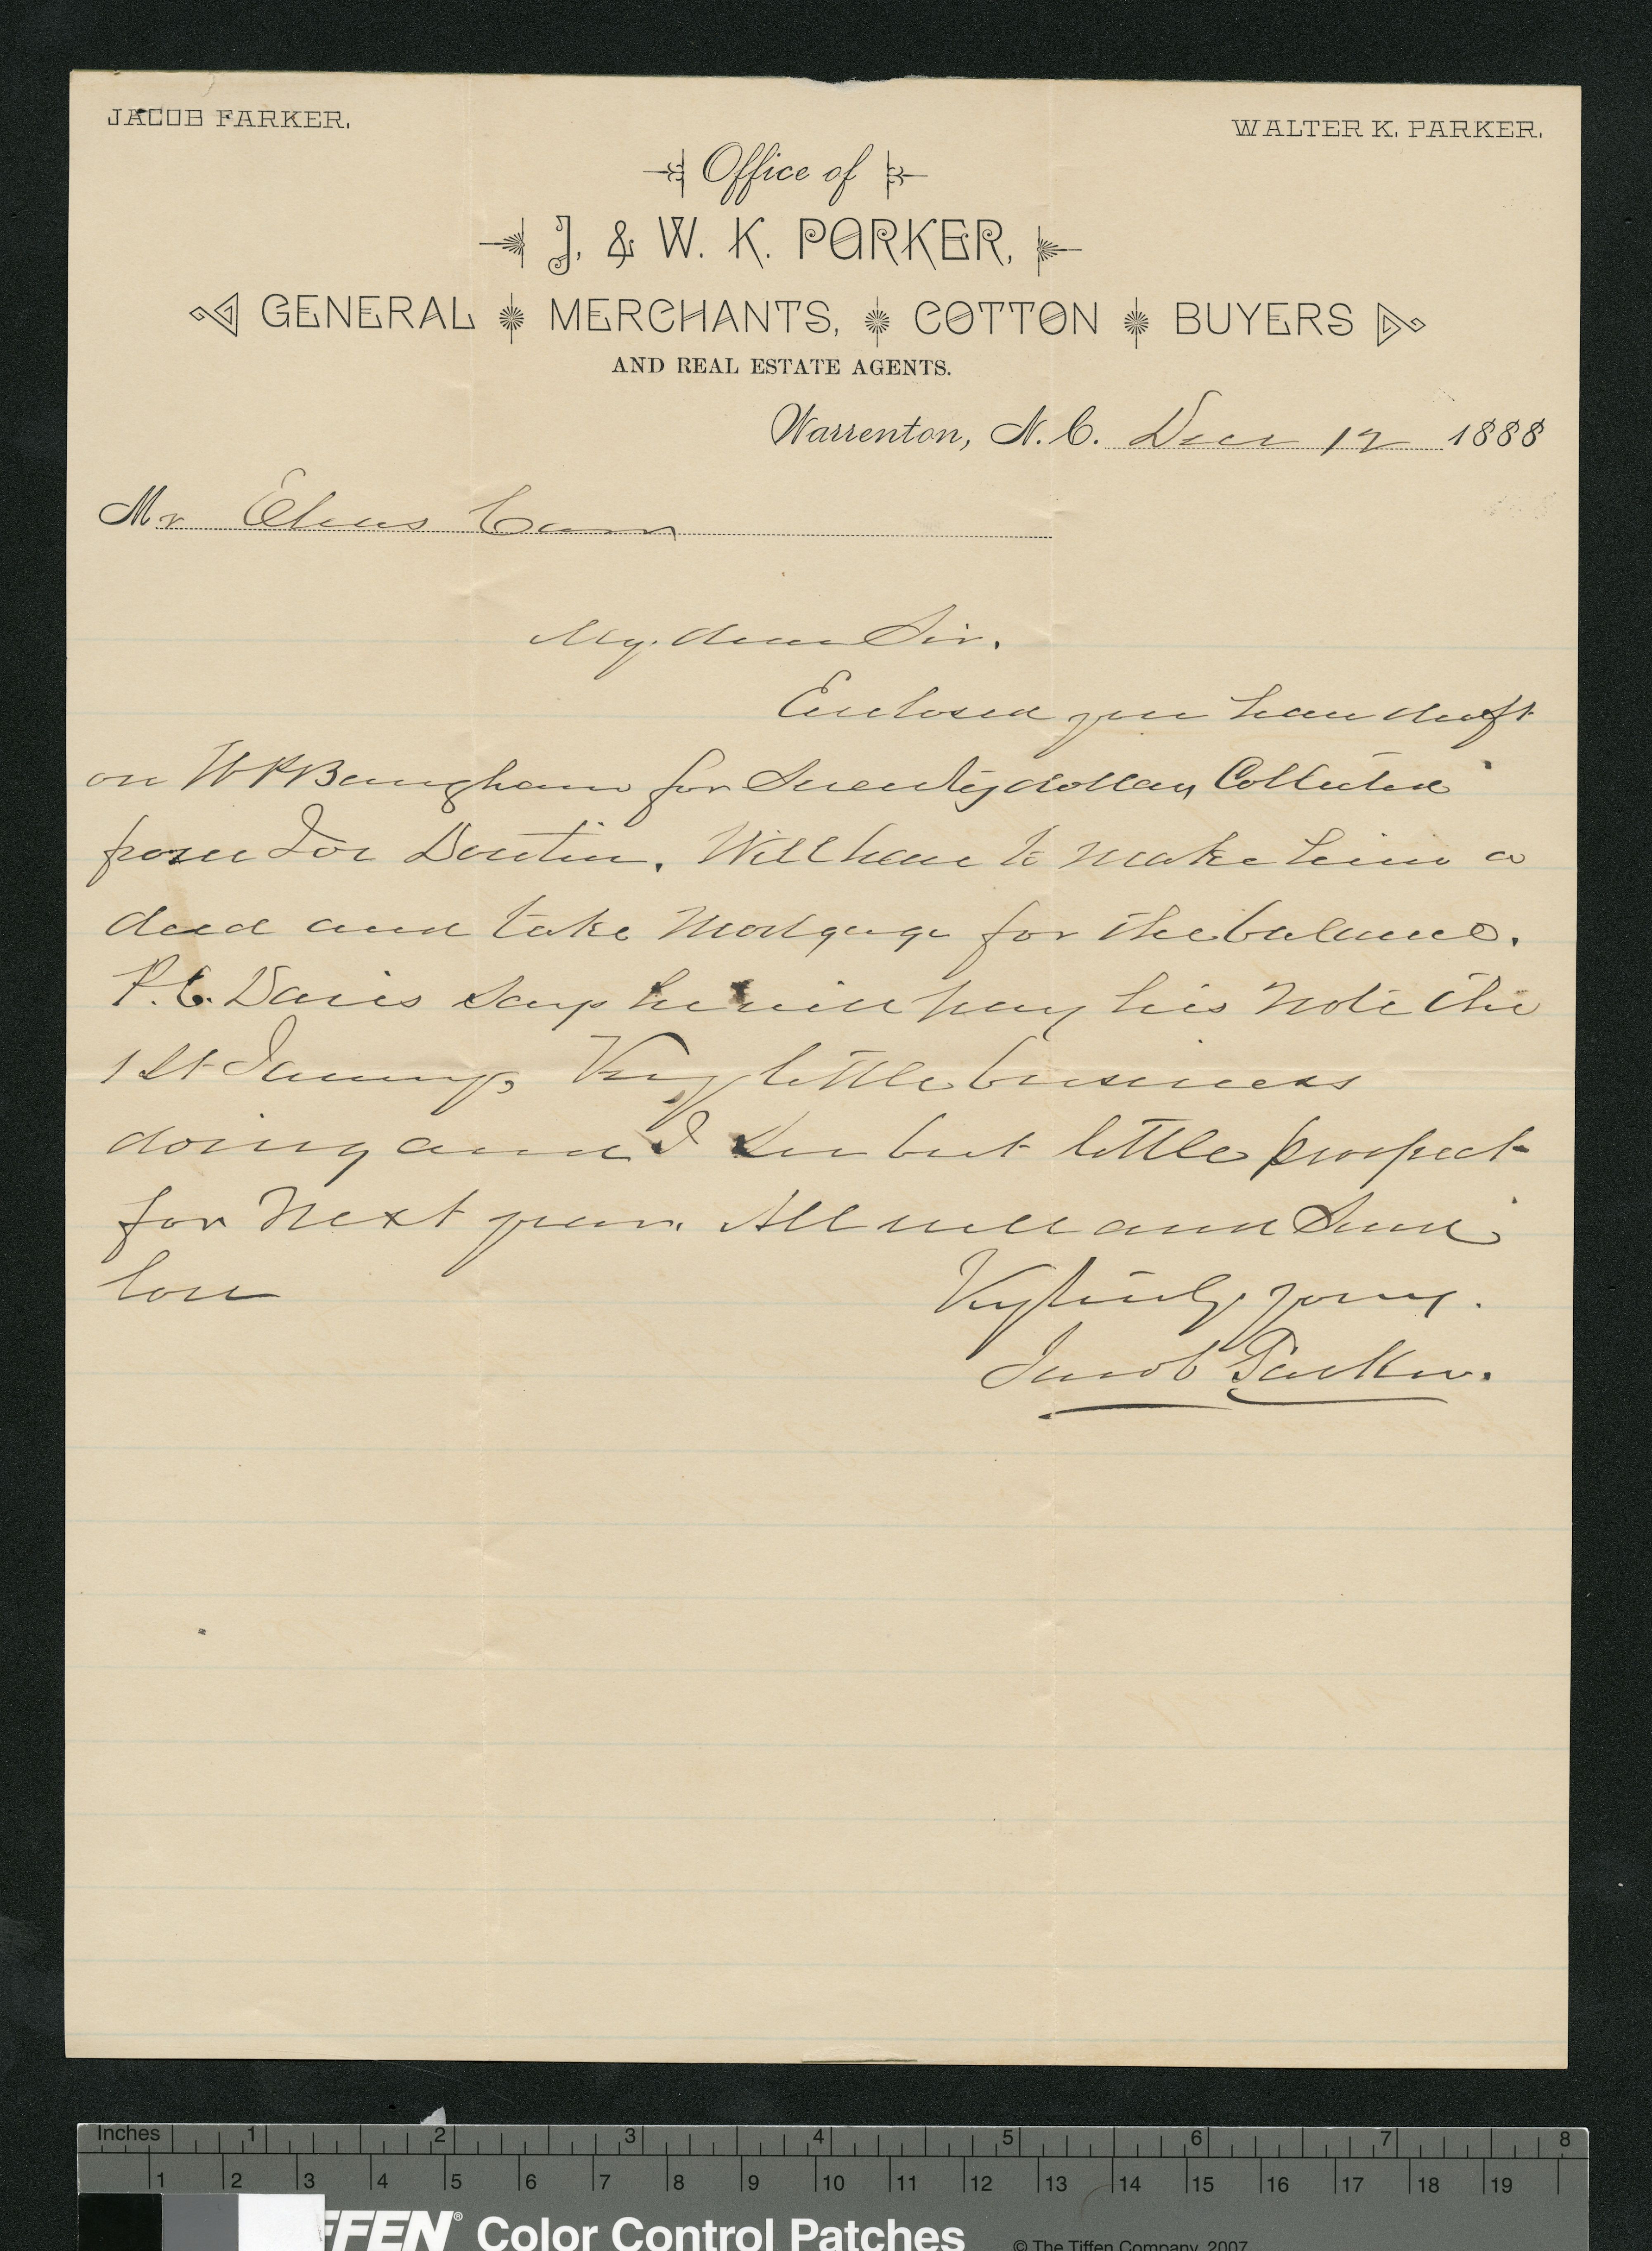 JACOB PARKER.
WALTER K. PARKER.
Office of
J. & W. K. PARKER,
GENERAL MERCHANTS, COTTON BUYERS
AND REAL ESTATE AGENTS.
Warrenton, N. C. Decr 12 1888
Mr Elias Carr
My dear Sir.
Enclosed you have draft
on W P Baugham for Twenty dollars Collected
from Joe . Will have to make him a
deed and take Mortgage for the balance.
P. C. Davis says he will pay his Note the
1st January, Very little business
doing and I see but little prospect
for Next year. All well and Send
love
Very truly yours.
Jacob Parker.
Inches 1 2 3 4 5 6 7 8
1 2 3 4 5 6 7 8 9 10 11 12 13 14 15 16 17 18 19
FFEN® Color Control Patches
© The Tiffen Company, 2007